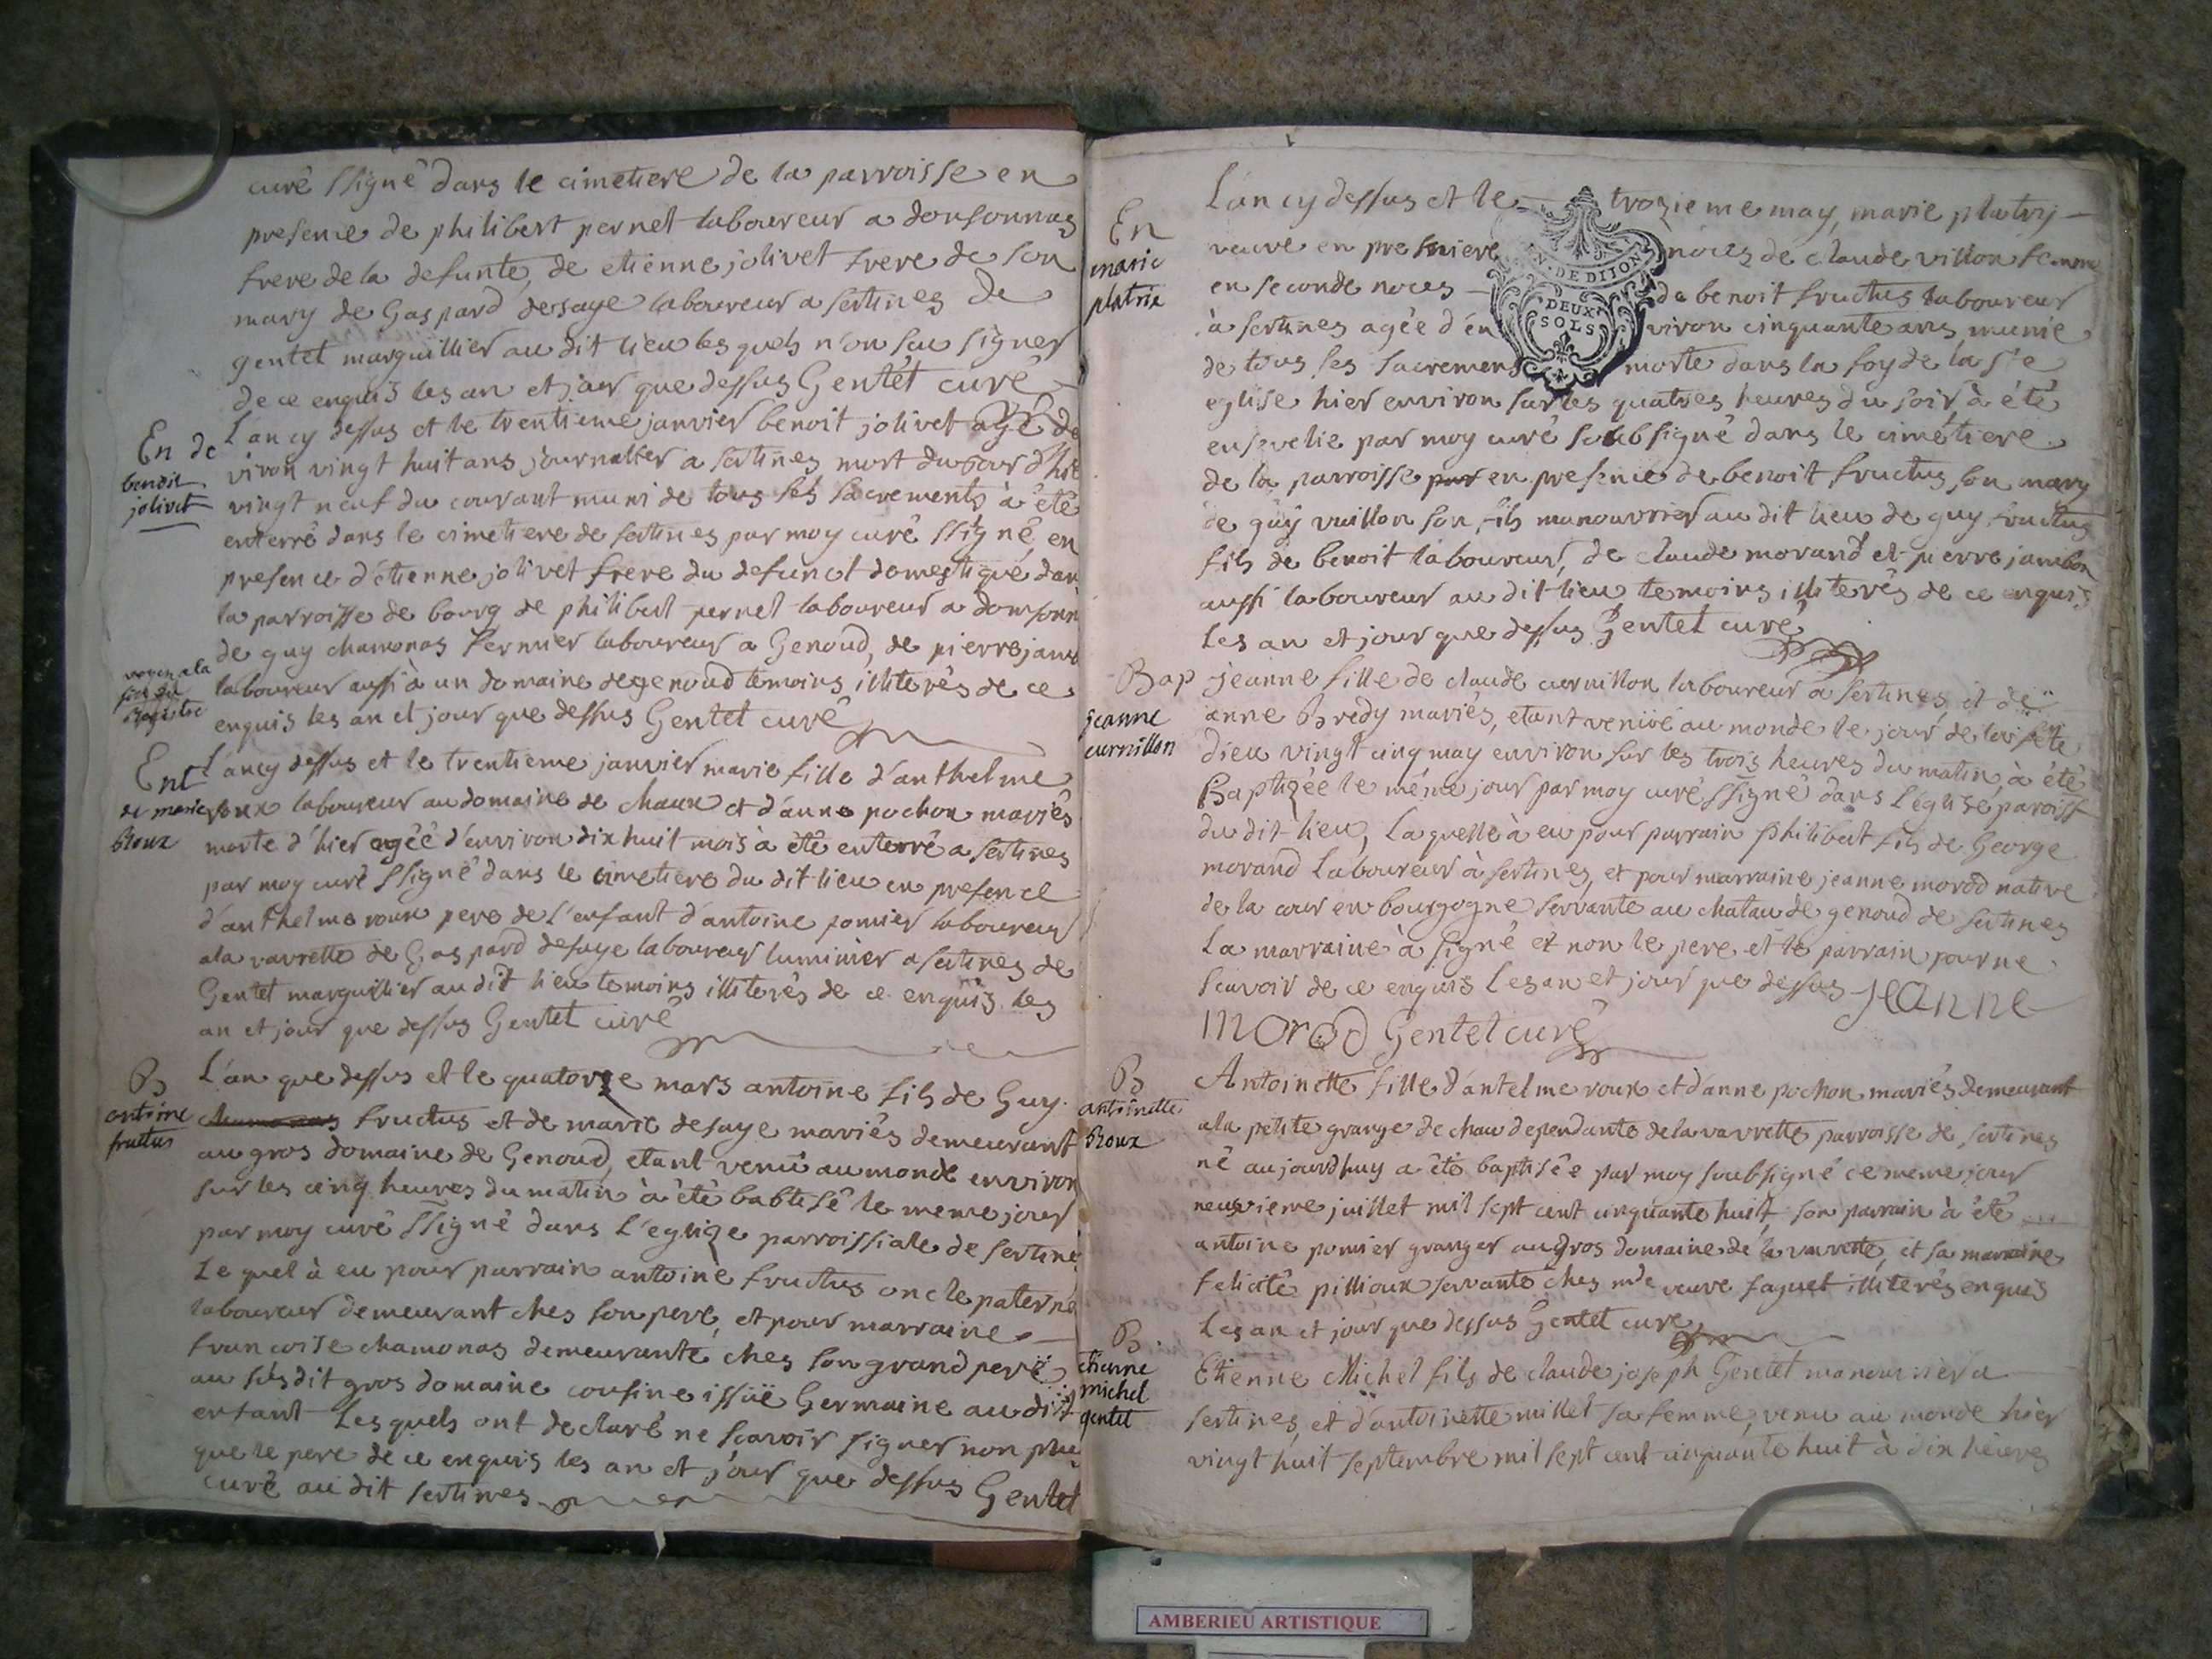 curé ssigné dans le cimetiere de la parroisse en
presence de philibert pernet laboureur a donsonnas
frere de la defunte, de etienne jolivet frere de son
mary de Gaspard desaye laboureur a sertines de
gentet marguillier au dit lieu lesquels n'on sçu signer
de ce enquis les an et jour que dessus Gentet curé
En de
benoit
jolivet
L'an cy dessus et le trentieme janvier benoit jolivet agé de
viron vingt huit ans journallier a sertines mort du jour d'hier
vingt neuf du courant muni de tous ses sacrements à été
enterré dans le cimetiere de sertines par moy curé ssigné, en
presence d'étienne jolivet frere du defunct domestique dan
la parroisse de bourg de philibert pernet laboureur a domsonn
de guy chamonas fermier laboureur a Genoud, de pierre jamb
laboureur aussi à un domaine de genoud temoins illiterés de ce
enquis les an et jour que dessus Gentet curé
voyez a la
fin du
Registre
Ent
de marie
Roux
L'ancy dessus et le trentieme janvier marie fille d'anthelme
roux laboureur au domaine de chaux et d'anne pochon mariés
morte d'hier agée d'environ dix huit mois à été enterré a sertines
par moy curé ssigné dans le cimetiere du dit lieu en presence
d'anthelme roux pere de l'enfant d'antoine pomier laboureur
a la vavrette de Gaspard desaye laboureur luminier a sertines de
Gentet marguillier au dit lieu temoins illiterés de ce enquis les
an et jour que dessus Gentet curé
B
antoine
fructus
L'an que dessus et le quatorze mars antoine fils de Guy
chamonas fructus et de marie desaye mariés demeurant
au gros domaine de Genoud, etant venû au monde environ
sur les cinq heures du matin à été babtisé le meme jour
par moy curé ssigné dans l'eglize parroissiale de sertine
Le quel à eu pour parrain antoine fructus oncle paterne
laboureur demeurant ches son pere, et pour marraine
francoise chamonas demeurante ches son grand pere
au susdit gros domaine cousine issüe Germaine au dit
enfant Les quels ont declaré ne scavoir signer non plu
que le pere de ce enquis les an et jour que dessus Gentet
curé au dit sertines
En
marie
platrix
L'ancy dessus et le trozieme may, marie platry
veuve en premiere noces de claude villon femme
en seconde noces de benoit fructus laboureur
à sertines agée d'environ cinquante ans munie
de tous ses sacremens morte dans la foy de la ste
eglise hier environ sur les quatres heures du soir à été
ensevelie par moy curé soubsigné dans le cimétiere
de la parroisse par en presence de benoit fructus son mary
de guy vuillon son fils manouvrier au dit lieu de guy fructus
fils de benoit laboureur, de claude morand et pierre jambon
aussi laboureur au dit lieu temoins illiterés de ce enquis
les an et jour que dessus Gentet curé
N. DE DIJON
DEUX
SOLS
Bap
jeanne
curnillon
jeanne fille de claude curnillon laboureur a sertines et de
anne Bredy mariés, etant venüe au monde le jour de la fête
dieu vingt cinq may environ sur les trois heures du matin, à été
Baptizée le même jour par moy curé ssigné dans l'église paroiss
du dit lieu, Laquelle à eu pour parrain philibert fils de George
morand Laboureur à sertines, et pour marraine jeanne morod native
de la cour en bourgogne servante au chatau de genoud de sertines
La marraine à signé et non le pere et le parrain pour ne
scavoir de ce enquis Les an et jour que dessus jeanne
morod Gentet curé
B
antoinette
Roux
Antoinette fille d'antelme roux et d'anne pochon mariés demeurant
a la petite grange de chau dependante de la vavrette parroisse de sertines
né aujourdhuy a été baptisée par moy soubsigné ce meme jour
neuvieme juillet mil sept cent cinquante huit, son parrain à été
antoine pomier granger au gros domaine de la vavrette, et sa marraine
felicité pillioux servante ches mde veuve faguet illiterés enquis
Les an et jour que dessus Gentet curé
B
etienne
michel
gentet
Etienne Michel fils de claude joseph Gentet manouvrier a
sertines, et d'antoinette millet sa femme, venu au monde hier
vingt huit septembre mil sept cent cinquante huit à dix heures
AMBERIEU ARTISTIQUE